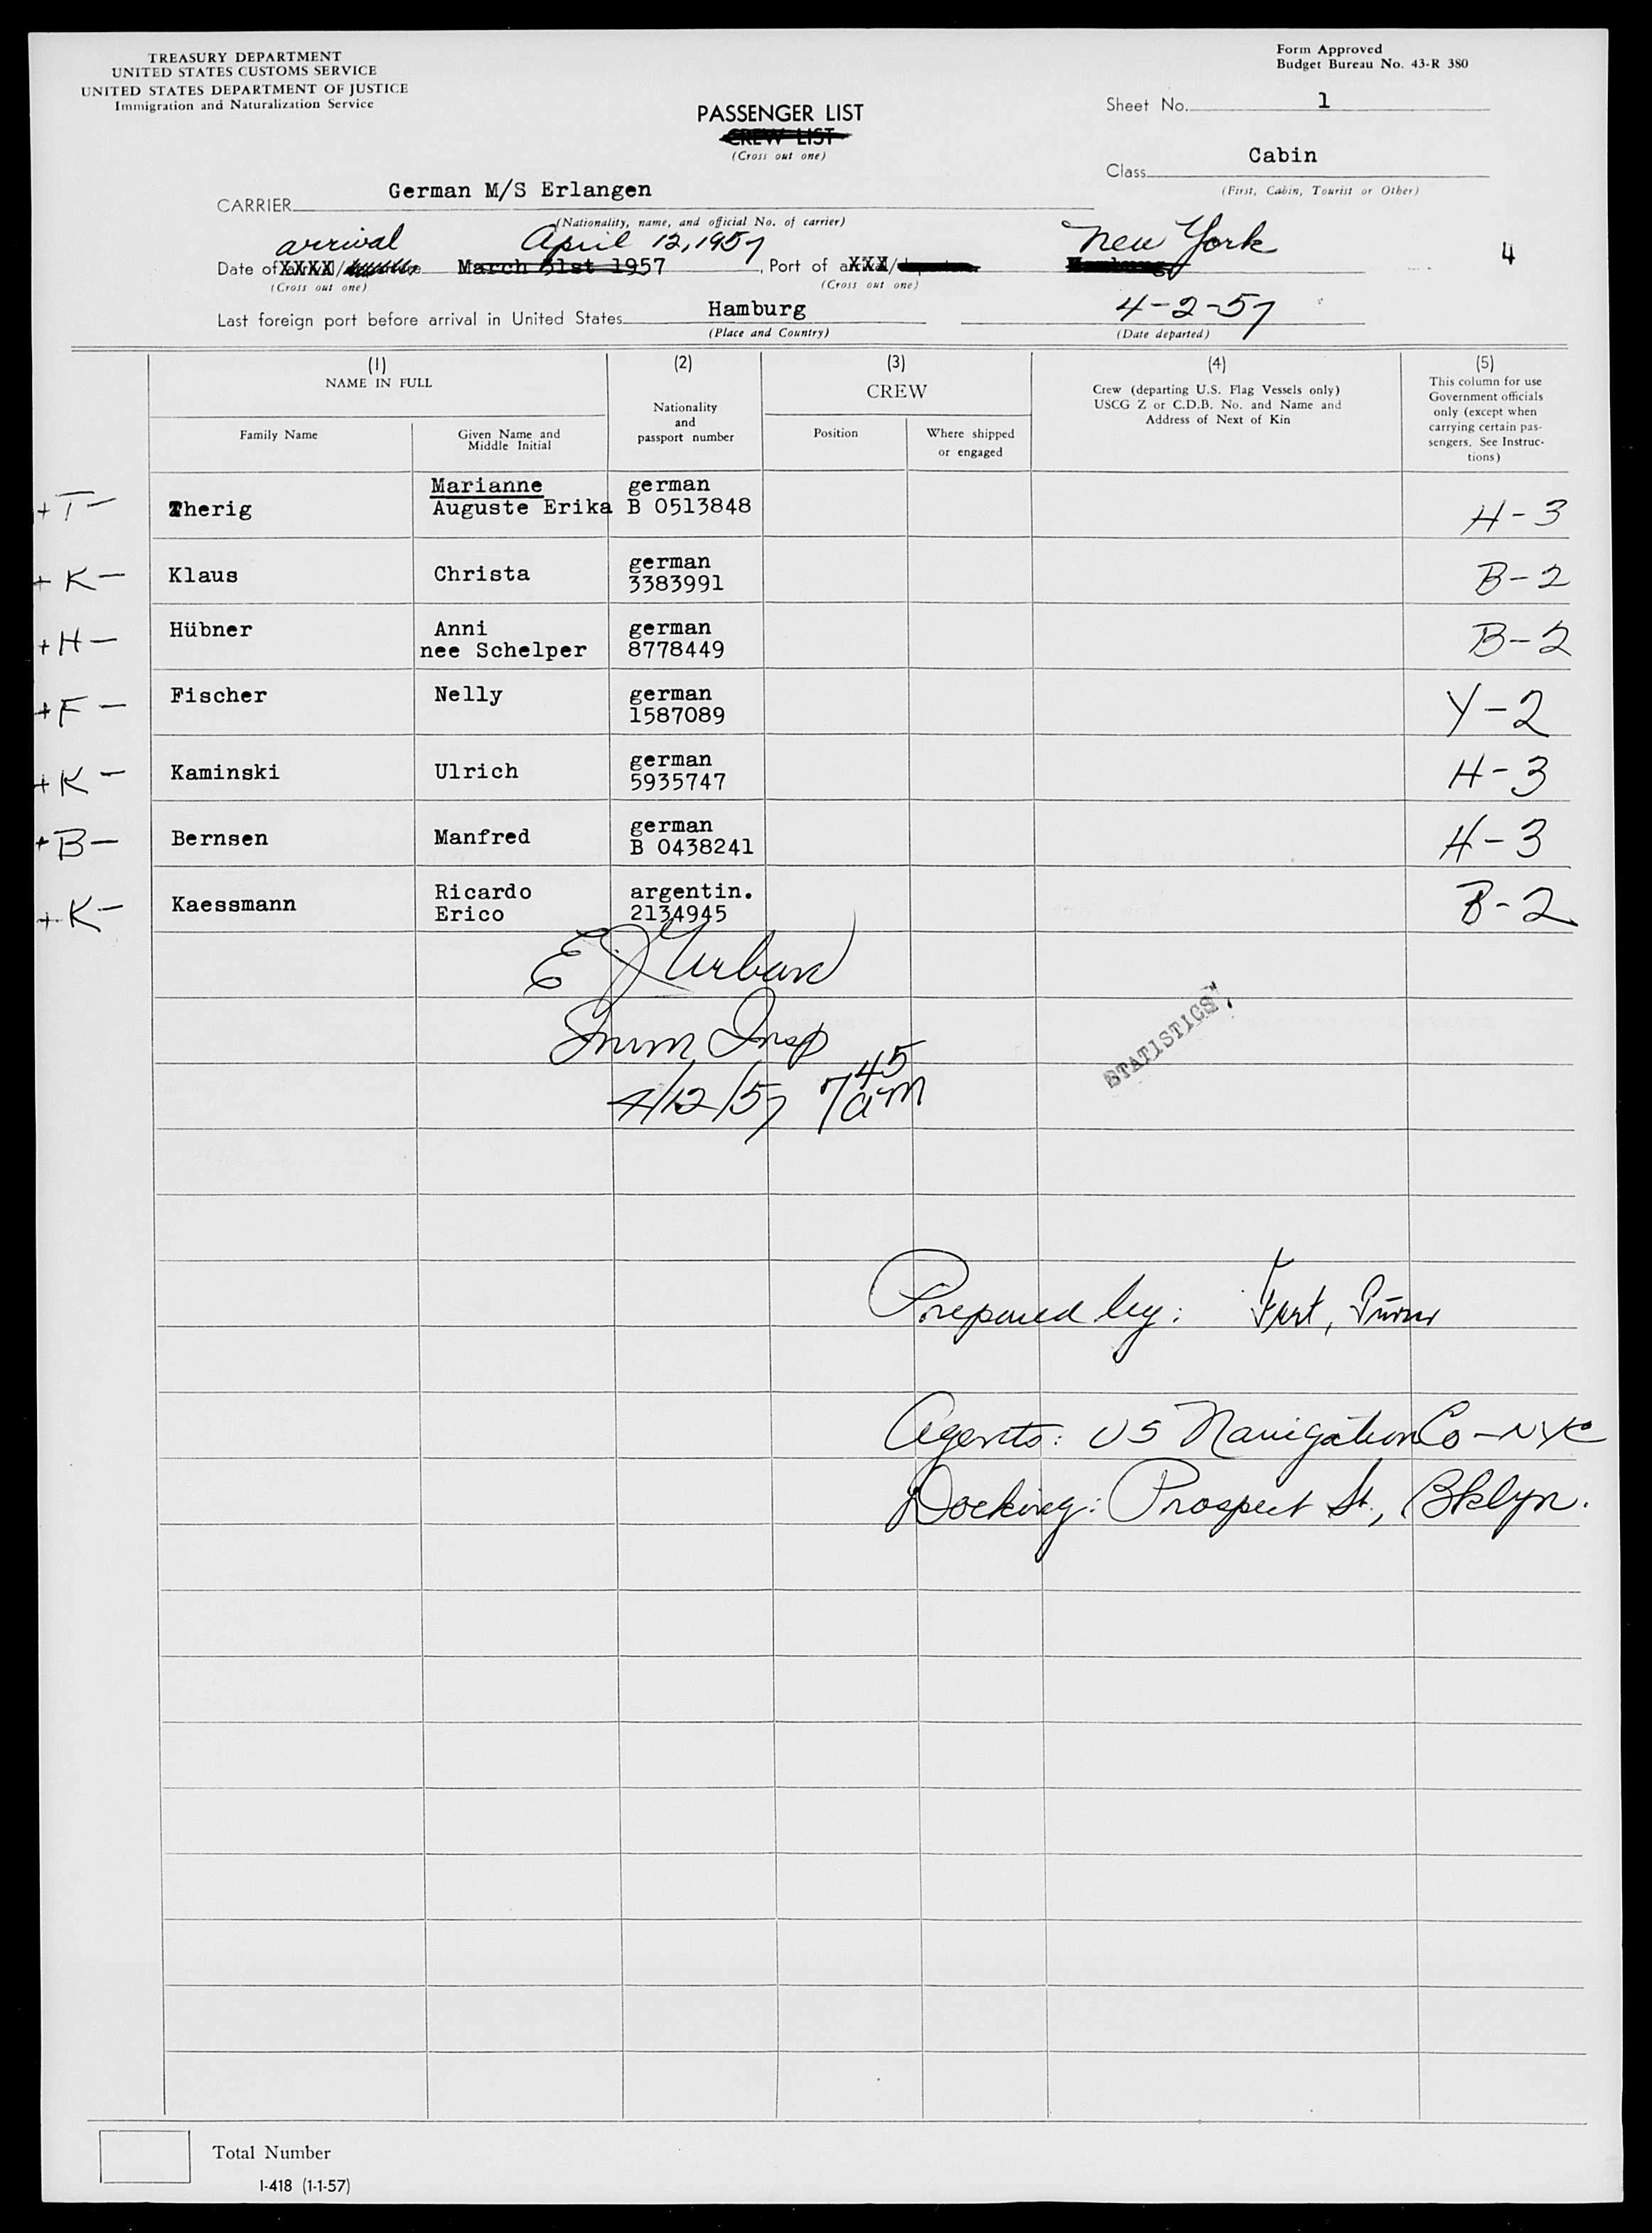 TREASURY DEPARTMENT
UNITED STATES CUSTOMS SERVICE
UNITED STATES DEPARTMENT OF JUSTICE
Immigration and Naturalization Service
Form Approved
Budget Bureau No. 43-R 380
PASSENGER LIST
CREW LIST
(Cross out one)
Sheet No. 1
Class Cabin
(First, Cabin, Tourist or Other)
CARRIER German M/S Erlangen
(Nationality, name, and official No. of carrier)
arrival April 12, 1957 New York
Date of XXXX / March 31st 1957, Port of aXXX/ Hamburg 4
(Cross out one) (Cross out one)
Last foreign port before arrival in United States Hamburg 4-2-57
(Place and Country) (Date departed)
(1) (2) (3) (4) (5)
NAME IN FULL
Family Name
Given Name and Middle Initial
Nationality and passport number
CREW
Position
Where shipped or engaged
Crew (departing U.S. Flag Vessels only)
USCG Z or C.D.B. No. and Name and
Address of Next of Kin
This column for use
Government officials
only (except when
carrying certain pas-
sengers. See Instruc-
tions)
Marianne german
+ T - Therig Auguste Erika B 0513848 H-3
german
+ K - Klaus Christa 3383991 B-2
Hübner Anni german
+ H - nee Schelper 8778449 B-2
Fischer Nelly german
+ F - 1587089 Y-2
german
+ K - Kaminski Ulrich 5935747 H-3
german
+ B - Bernsen Manfred B 0438241 H-3
Ricardo argentin.
+ K - Kaessmann Erico 2134945 B-2
E J Urban
Imm Insp
4/12/57 7 45 am
STATISTICS
Prepared by:
Agents: US Navigation Co - NYC
Docking: Prospect St., Bklyn.
Total Number
I-418 (1-1-57)